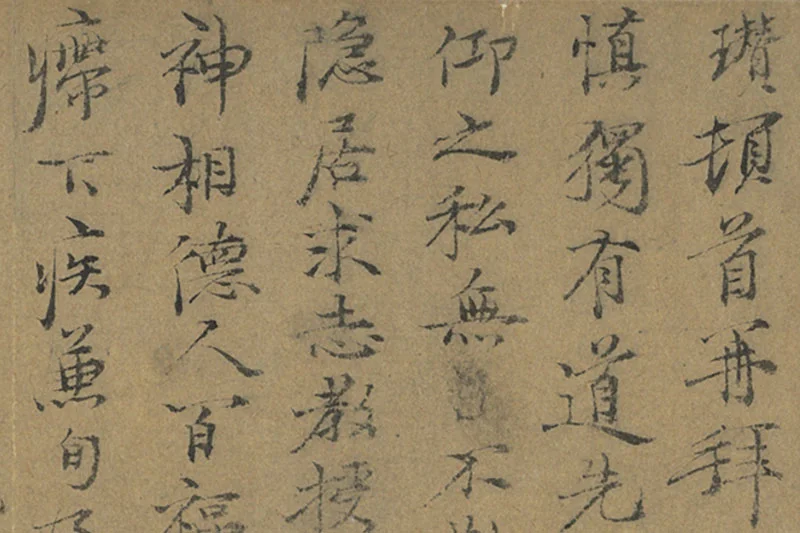 瓚頓首再拜
慎獨有道先
仰之私無不
隱居求志教授
神相德人百福
㿃下疾兼旬